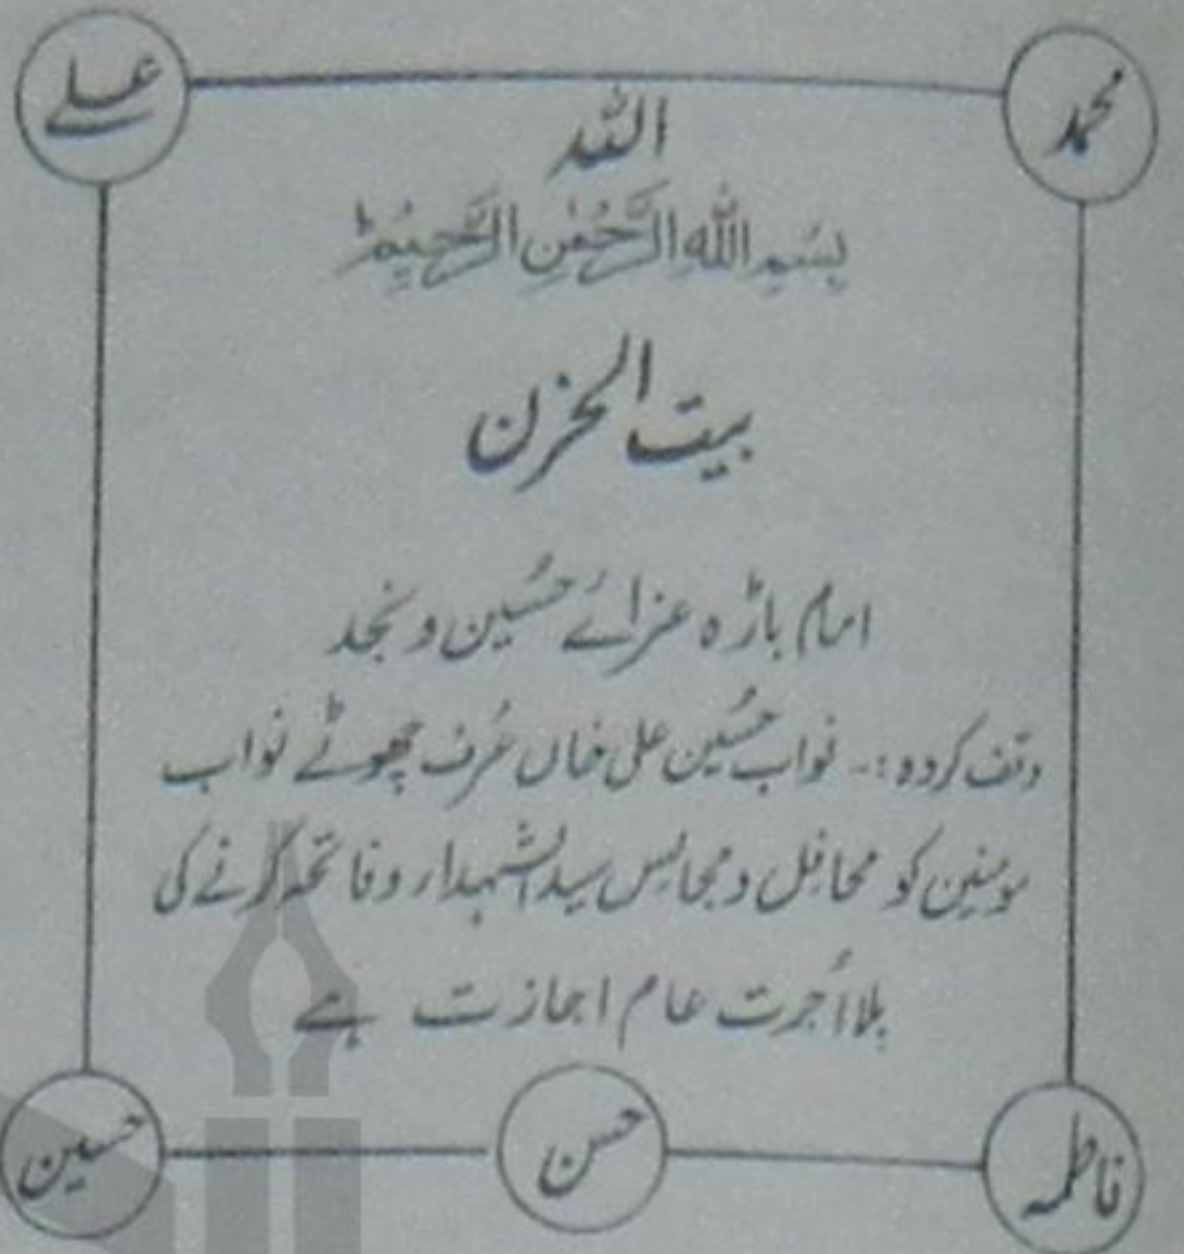 محمد
علے
اللہ
بِسْمِ اللهِ الرَّحْمٰنِ الرَّحِيْمِ ط
بیت الحزن
امام باڑہ عزائے حُسین و نجد
وقف کردہ :۔ نواب حُسین علی خاں عُرف چھوٹے نواب
مومنین کو محافل و مجالس سید الشہداء و فاتحہ کرنے کی
بلا اُجرت عام اجازت ہے
فاطمہ
حسن
حسین